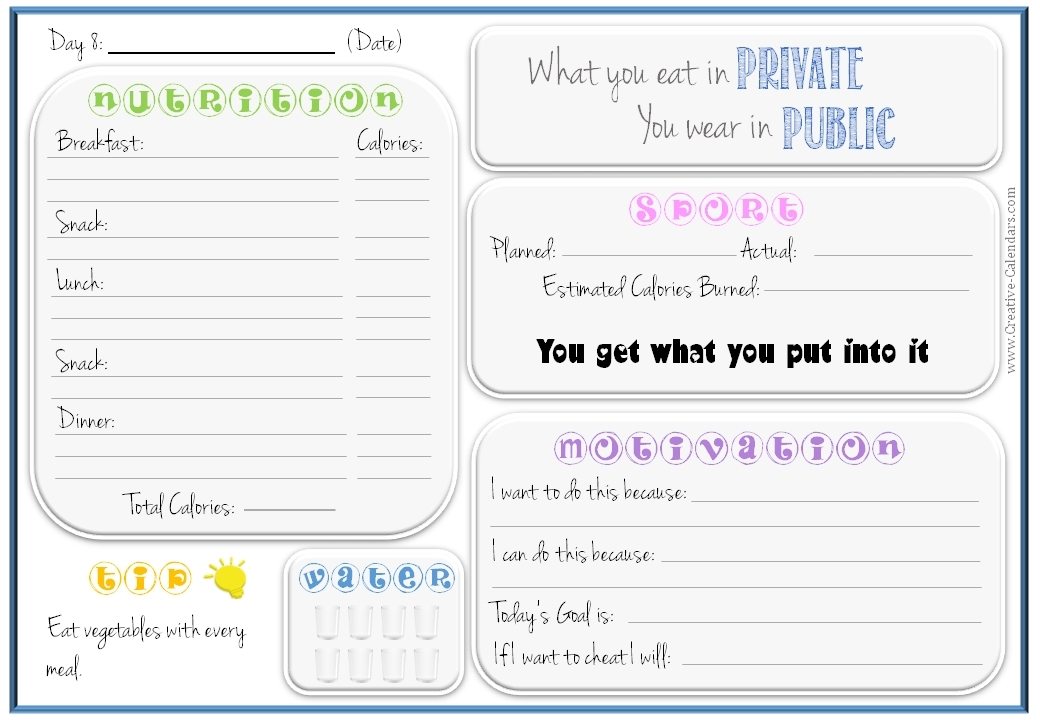 Day 8: ____________ (Date)
NUTRITION
Breakfast: Calories:
Snack:
Lunch:
Snack:
Dinner:
Total Calories:
TIP
Eat vegetables with every
meal.
WATER
What you eat in PRIVATE
You wear in PUBLIC
SPORT
Planned: Actual:
Estimated Calories Burned:
You get what you put into it
MOTIVATION
I want to do this because:
I can do this because:
Today's Goal is:
If I want to cheat I will:
www.Creative-Calendars.com